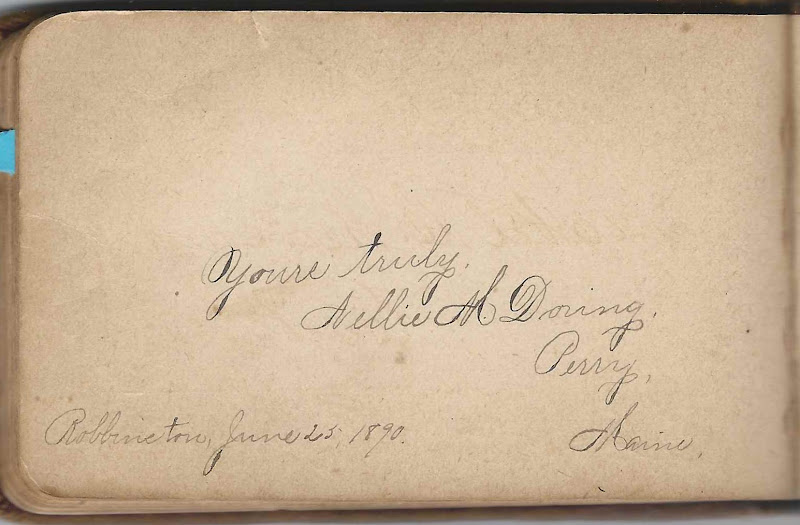 Yours truly.
Nellie M Doring.
Perry,
Maine,
Robbinston, June 25, 1890.